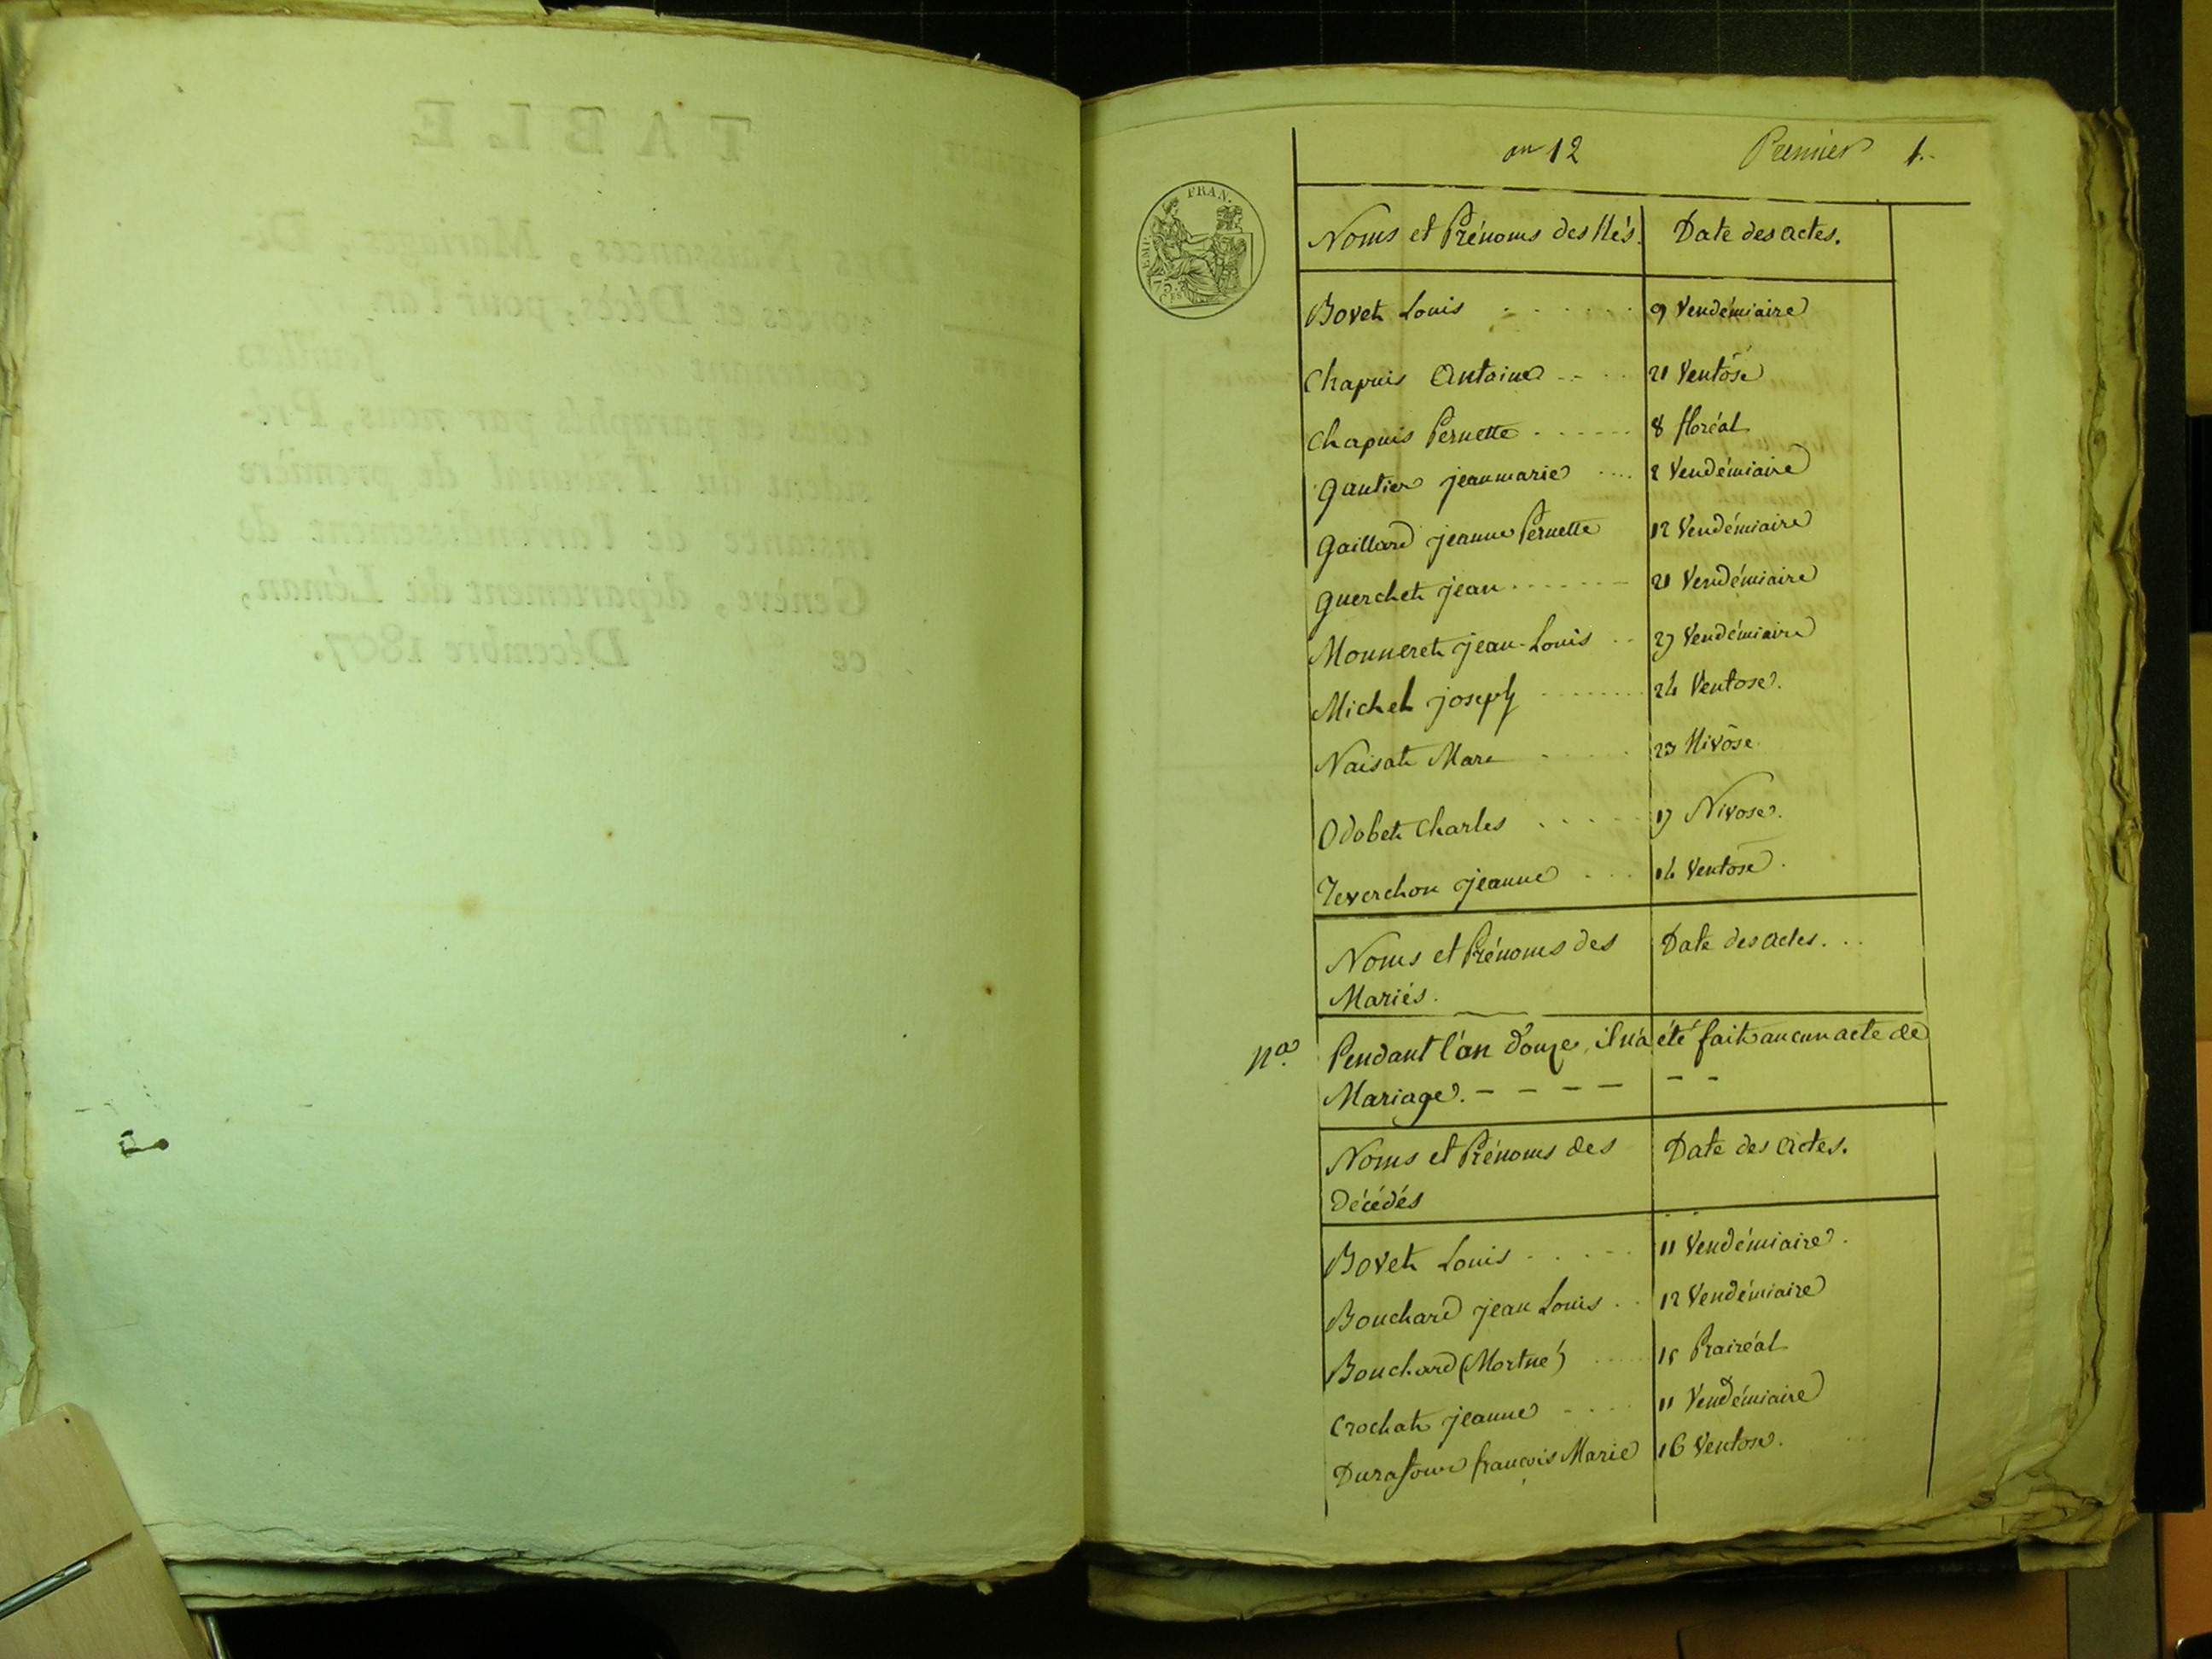 TABLE
Des Naissances, Mariages, Di-
vorces et Décès, pour l'an
contenant feuillets
cotés et paraphés par nous, Pré-
sident du Tribunal de première
instance de l'arrondissement de
Genève, département du Léman,
ce Décembre 1807.
an 12 Premier 1.
EMP. FRAN.
75.
CES
Noms et Prénoms des Nés. Date des actes.
Bovet Louis 9 Vendémiaire
Chapuis Antoine 21 Ventôse
Chapuis Pernette 8 floréal
Gautier jeanmarie 2 Vendémiaire
Gaillard jeanne Pernette 12 Vendémiaire
Guerchet jean 21 Vendémiaire
Monneret jean-Louis 27 Vendémiaire
Michel joseph 24 Ventose.
Naisat Marc 23 Nivôse.
Odobet Charles 17 Nivose.
Teverchon jeanne 14 Ventôse.
Noms et Prénoms des Date des actes.
Mariés.
Na. Pendant l'an douze, il n'a été fait aucun acte de
Mariage. - - - - - -
Noms et Prénoms des Date des actes.
Décédés
Bovet Louis 11 Vendémiaire.
Bouchard jean Louis 12 Vendémiaire
Bouchard (Mortné) 15 Prairéal
Crochat jeanne 11 Vendémiaire
Durafour françois Marie 16 Ventose.